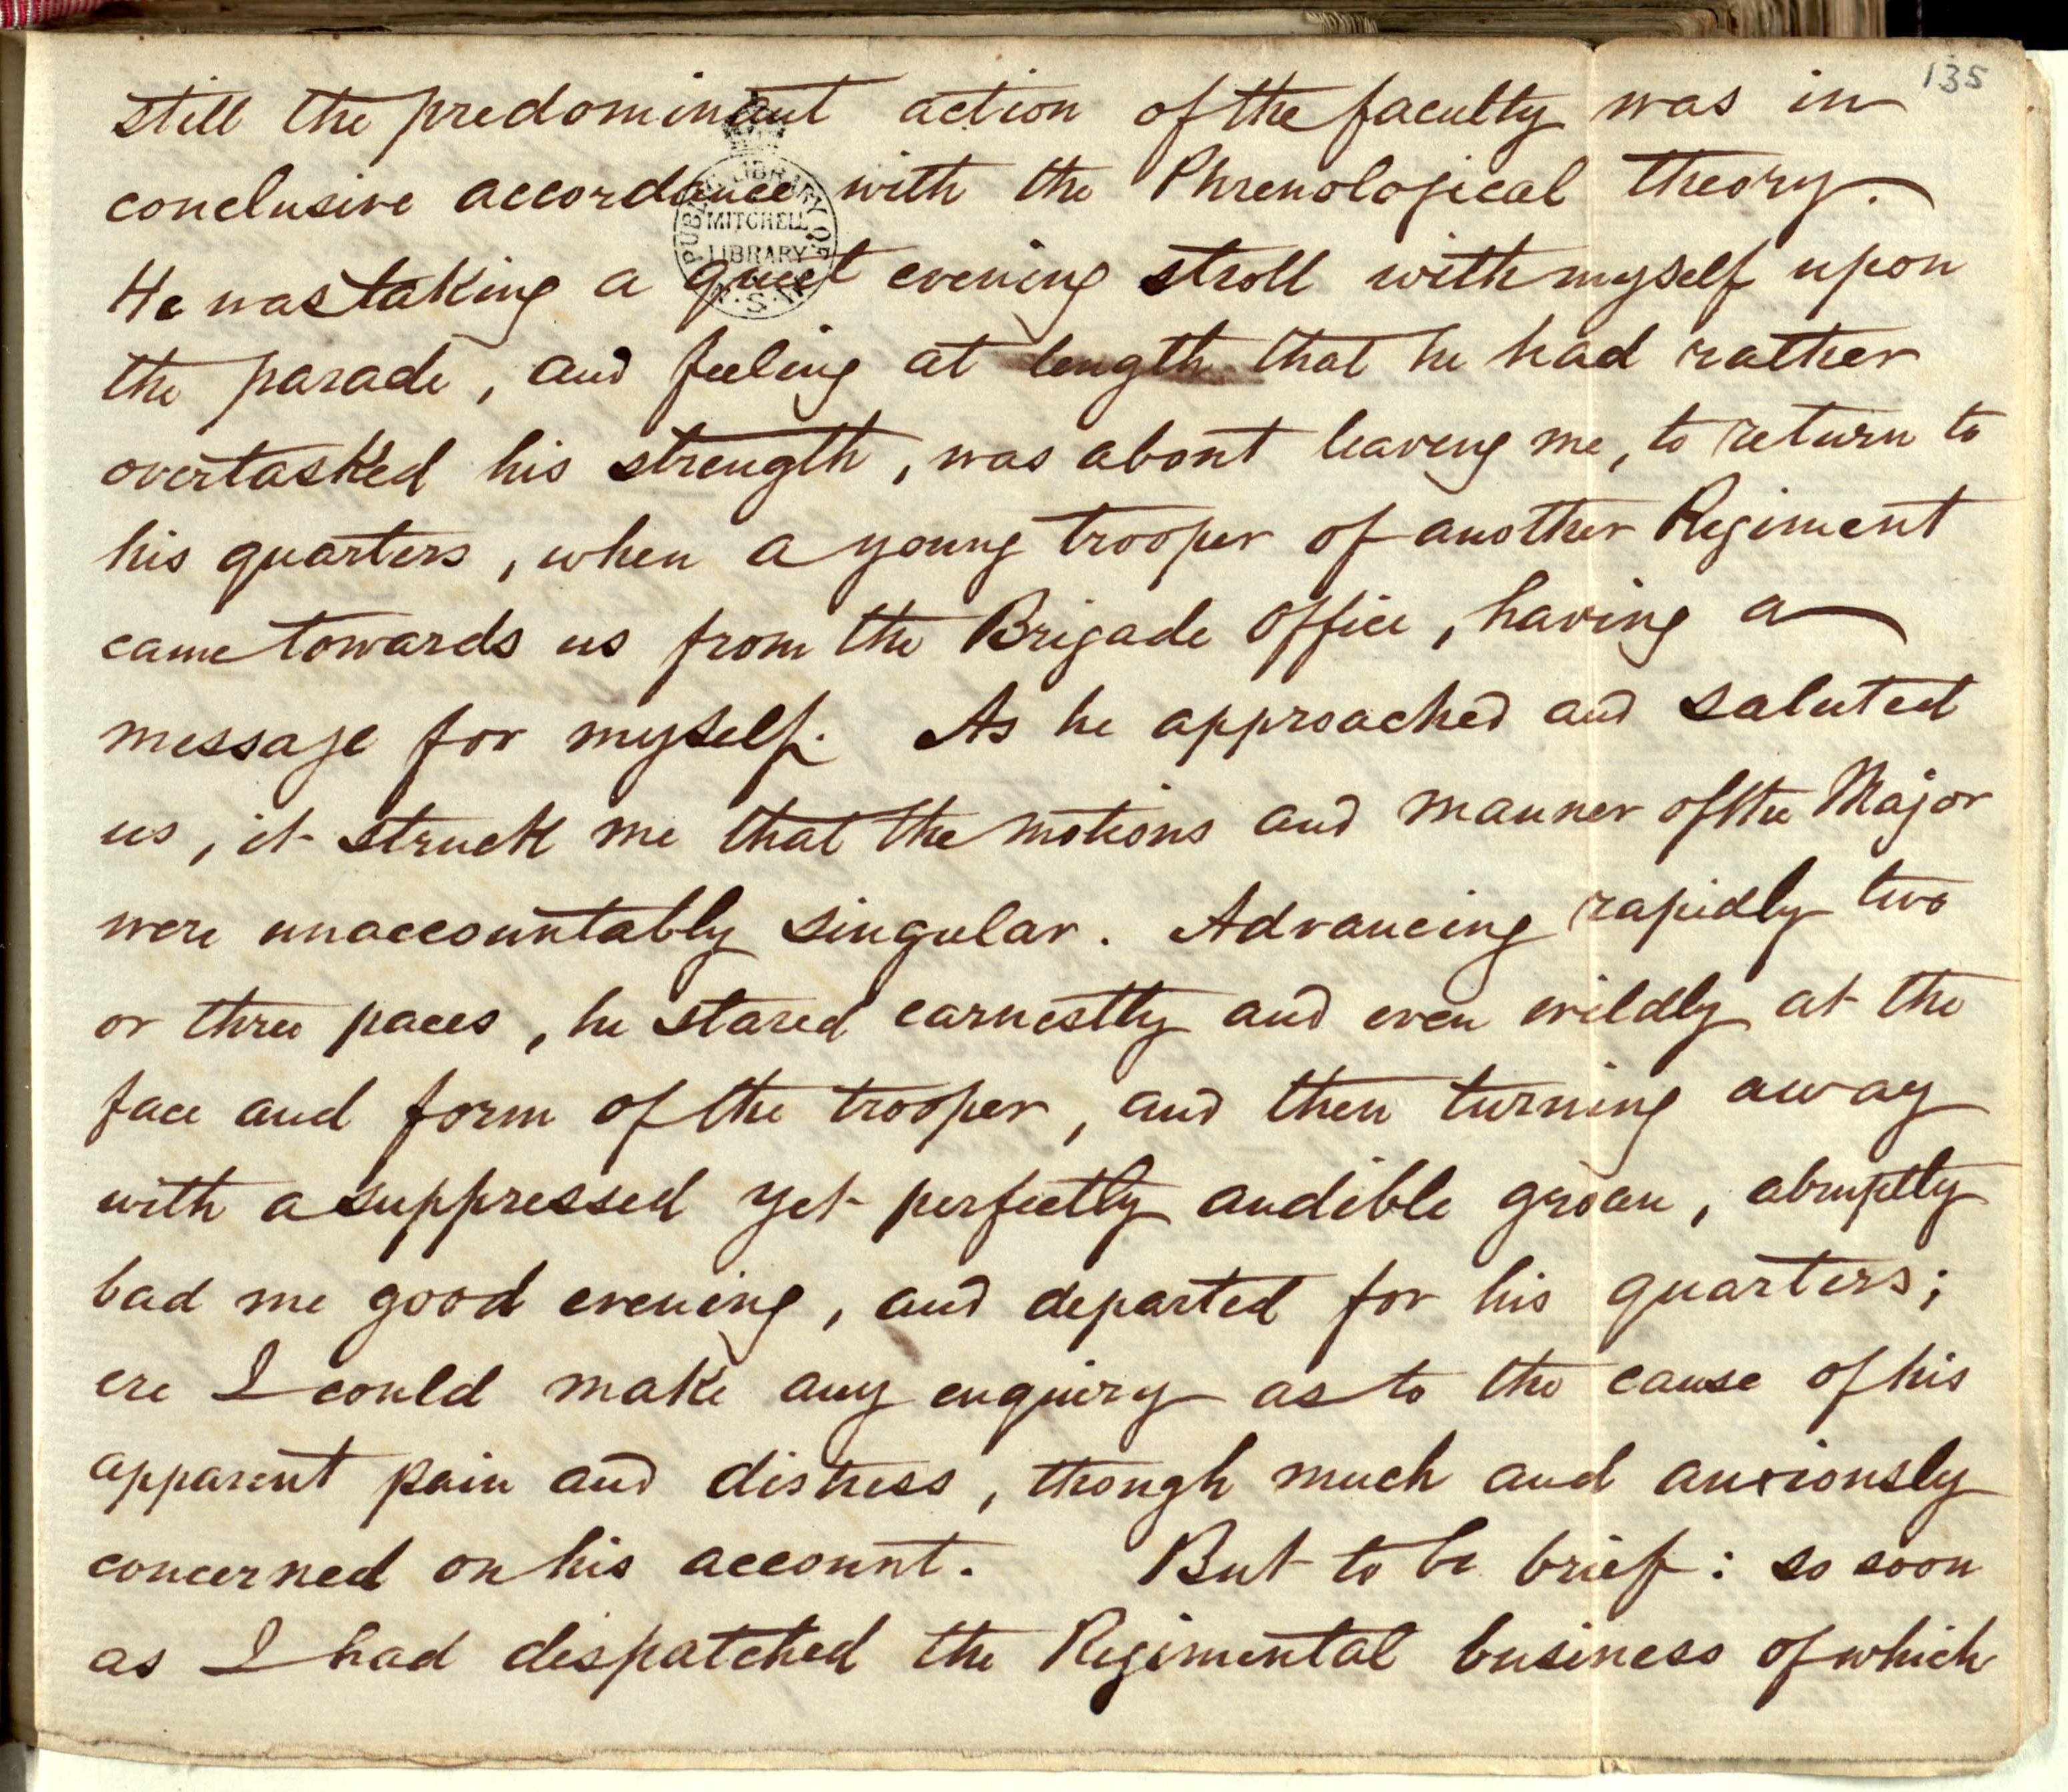 135
still the predominant action of the faculty was in
conclusive accordance with the Phrenological theory.
He was taking a quiet evening stroll with myself upon
the parade, and feeling at length that he had rather
overtasked his strength, was about leaving me, to return to
his quarters, when a young trooper of another Regiment
came towards us from the Brigade Office, having a
message for myself. As he approached and saluted
us, it struck me that the motions and manner of the Major
were unaccountably singular. Advancing rapidly two
or three paces, he stared earnestly and even wildly at the
face and form of the trooper, and then turning away
with a suppressed yet perfectly audible groan, abruptly
bad me good evening, and departed for his quarters;
ere I could make any enquiry as to the cause of his
apparent pain and distress, though much and anxiously
concerned on his account. But to be brief: so soon
as I had dispatched the Regimental business of which
PUBLIC LIBRARY OF N.S.W.
MITCHELL
LIBRARY